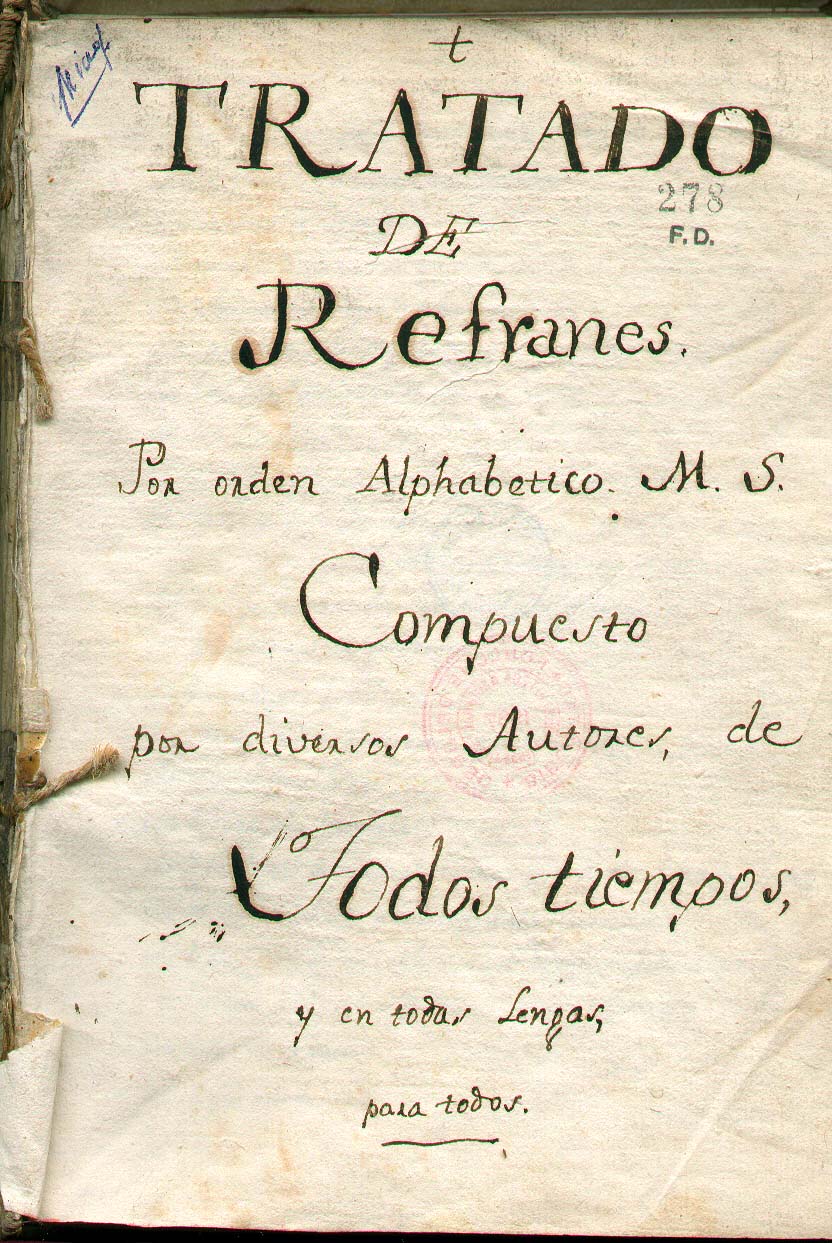 t
TRATADO
278
F. D.
DE
Refranes.
Por orden Alphabetico. M. S.
Compuesto
por diversos Autores, de
Todos tiempos,
y en todas Lengas,
para todos.